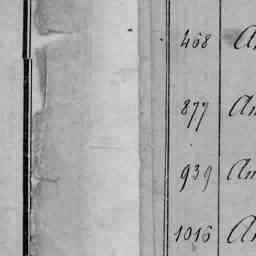 468 A
877 An
939 Am
1016 A